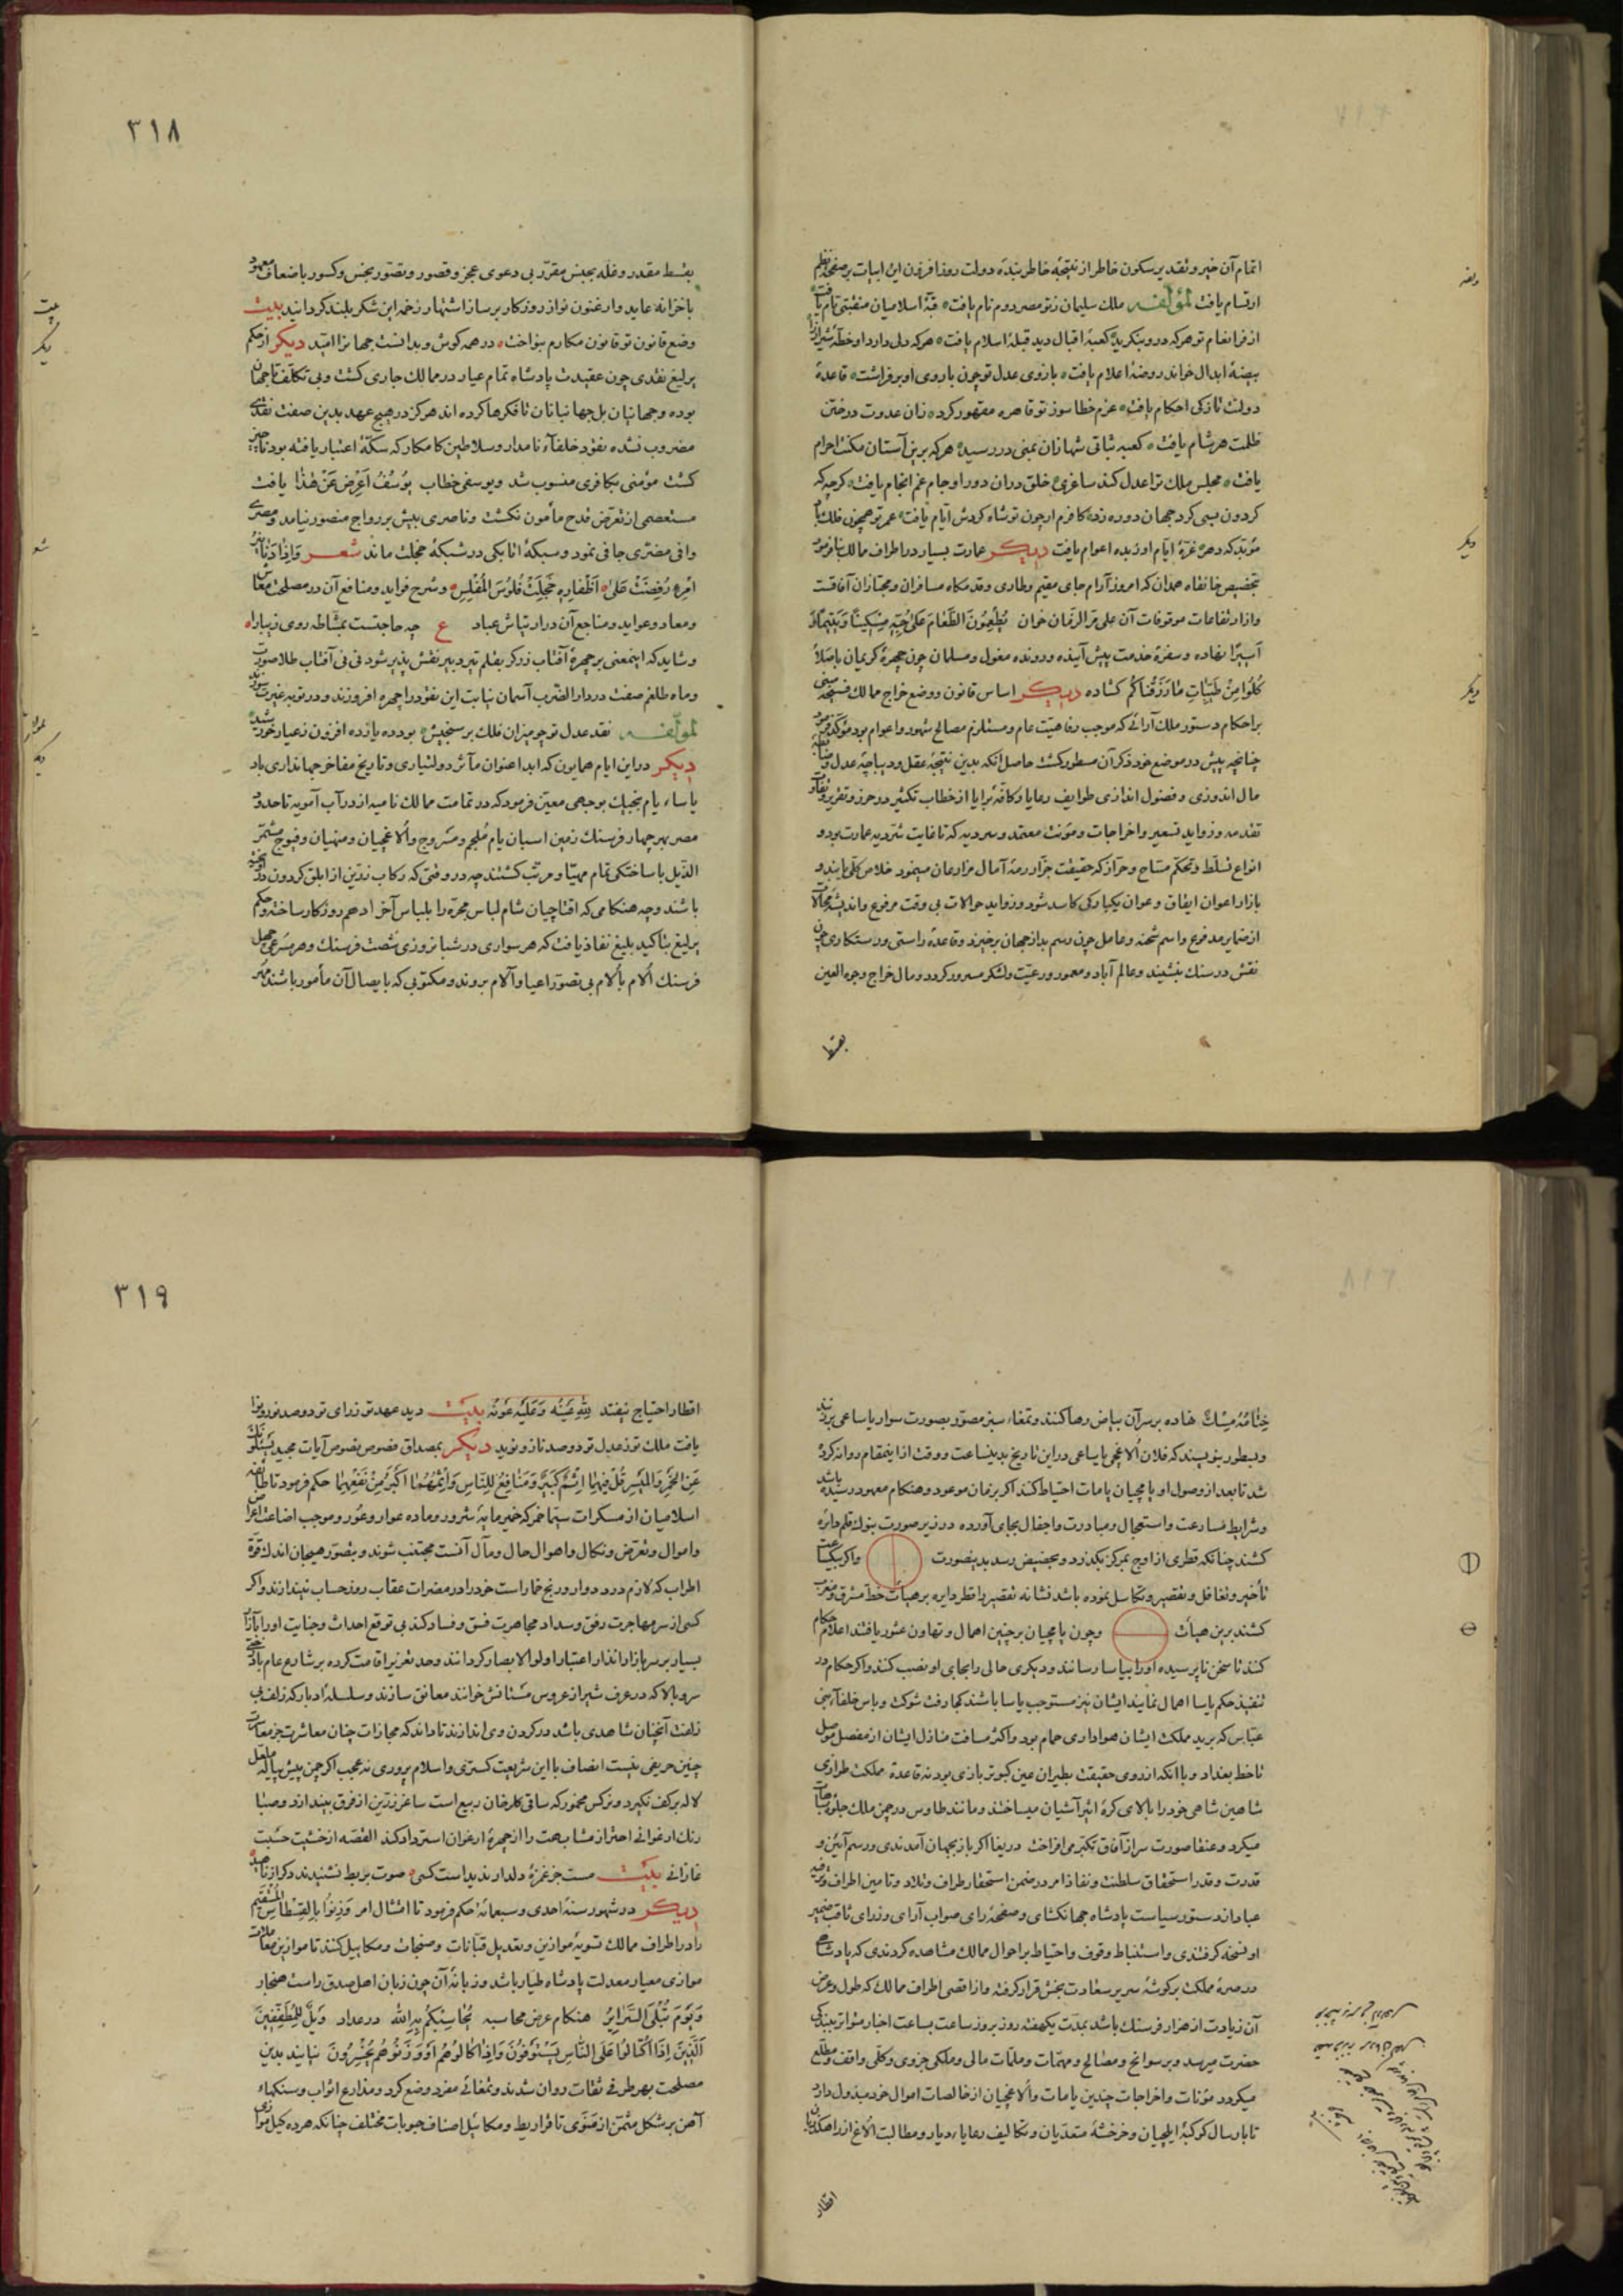 اتمام آن خیر و تقدیر سکون خاطر از نتیجهٔ خاطر بندهٔ دولت روزافزون این ابیات بر صفحهٔ نظم
ارتسام یافت لمؤلفه ملک سلیمان ز تو مصر دوم نام یافت ه قبهٔ اسلامیان منقبتی تام یافت
هر که درو بنکرید کعبهٔ اقبال دید قبلهٔ اسلام یافت ه هر که دلی دارد او خطهٔ شیراز را
بیضهٔ ابدال خواند روضهٔ اعلام یافت ه بازوی عدل تو چون باروی او بر فراشت ه قاعدهٔ
دولت تازکی احکام یافت ه عزم خطا سوز تو قاهره مقهور کرد ه زان عدوت درختن
ظلمت هر شام یافت ه کعبه ثباتی شها زان بمنی در رسید ه هر که برین آستان مکنت احرام
یافت ه مجلس ملک ترا عدل کند ساغری ه خلق دران دور او جام غم انجام یافت ه کرچه که
کردون بسی کرد جهان دوره زد ه کافرم ار چون تو شاه کردش ایام یافت ه عمر تو همچون فلک باد
مؤبد که دهر ه غرهٔ ایام او زبدهٔ اعوام یافت دیکر عمارت بسیار در اطراف ممالک بنا فرمود
بتخصیص خانقاه همدان که امروز آرام جای مقیم و طاری و قدمکاه مسافران و مجتازان آفاقست
و از ارتفاعات موقوفات آن علی مر الزمان خوان یُطْعِمُونَ الطَّعَامَ عَلَىٰ حُبِّهِ مِسْكِينًا وَيَتِيمًا وَ
أَسِيرًا نهاده و سفرهٔ خدمت پیش آینده و رونده مغول و مسلمان چون چهرهٔ کریمان باصلاء
كُلُوا مِنْ طَيِّبَاتِ مَا رَزَقْنَاكُمْ کشاده دیکر اساس قانون و وضع خراج ممالک فسیحه مبنی
بر احکام دستور ملک آرائی که موجب رفاهیت عام و مستلزم مصالح شهور و اعوام بود مؤکد فرمود
چنانچه پیش در موضع خود ذکر آن مسطور کشت حاصل آنکه بدین نتیجهٔ عقل و دیباچهٔ عدل و
مال اندوزی و فضول اندازی طوایف رعایا و کافهٔ برایا از خطاب تکثیر در حرز و تقریر و
تقدمه و زواید تسعیر و اخراجات و مؤنت معتمد و سردیه که تا غایت شردیه عمارت بود و
انواع تسلط و تحکم مسّاح و حراز که حقیقت جزار رمهٔ آمال مزارعان میبود خلاص کلی یابند و
بازار اعوان ایفاق و عوان یکبارکی کاسد شود و زواید حوالات بی وقت مرفوع و اندیشهٔ محالات
از ضمایر مدفوع و اسم شحنه و عامل چون رسم بد از جهان برخیزد و قاعدهٔ راستی و رستکاری چون
نقش در سنک بنشیند و عالم آباد و معمور و رعیت و لشکر مسرور کردد و مال خراج و جوه العین
بقسط
٣١٨
بقسط مقدر و غله بجنس مقرر بی دعوی عجز و قصور و تصور بخس و کسور باضعاف معهود
با خزانه عاید و ارغنون نواز روزکار بر ساز اشتهار زخمهٔ این شکر بلند کرداند بیت
وضع قانون تو قانون مکارم بنواخت ه در همه کوش و بدانست جهانرا امید دیکر از حکم
یرلیغ نقدی چون عقیدت پادشاه تمام عیار در ممالک جاری کشت و بی تکلف تا جهان
بوده و جهانیان بل جهانبانان تا فکرها کرده اند هرکز در هیچ عهد بدین صفت نقدی
مضروب نشده نقود خلفاء نامدار و سلاطین کامکار که سکهٔ اعتبار یافته بود ناچیز
کشت مؤمنی بکافری منسوب شد و یوسفی خطاب يُوسُفُ أَعْرِضْ عَنْ هَٰذَا یافت
مستعصمی از تعرض قدح مأمون نکشت و ناصری بیش بر رواج منصور نیامد و مصری
وافی مضتری جافی نمود و سبکهٔ اتابکی در شبکهٔ خجلت ماند شعر وَإِذَا دَنَانِيرُ
امْرِءٍ رُفِضَتْ عَلَىٰ ه أَظْفَارِهِ خَجِلَتْ فُلُوسُ الْمُفْلِسِ ه و شرح فواید و منافع آن در مصلحت معاش
و معاد و عواید و مناجع آن در ارتیاش عباد ع چه حاجتست بمشاطه روی زیبا را ه
و شاید که اینمعنی بر چهرهٔ آفتاب زرکر بقلم تیر دبیر نقش پذیر شود نی نی آفتاب طلا صورت
و ماه طلغم صفت در دار الضرب آسمان نیابت این نقود را چهره افروزند و در بوته غیرت سوزند
لمؤلفه نقد عدل تو چو میزان فلک برسنجیش ه بود ده یازده افزون ز عیار خورشید
دیکر در این ایام همایون که ابدا عنوان مآثر دولتیاری و تاریخ مفاخر جهانداری باد
یاساء یام بخبیک بوجهی معین فرمود که در تمامت ممالک نامیه از رود آب آمویه تا حدود
مصر بهر چهار فرسنک زمین اسبان یام مُلجم و مسروج و اُلاغچیان و منهیان و فیوج مشمّر
الذّیل با ساختکی تمام مهیّا و مرتّب کشتند چه در وقتی که رکاب زرین از ابلق کردون
باشند و چه هنکامی که اقتاچیان شام لباس مجره را بلباس آخر ادهم روزکار ساخته و حکم
یرلیغ بتاکید بلیغ نفاذ یافت که هر سواری در شبانروزی شصت فرسنک و هر مسرعی چهل
فرسنک اُلام باُلام بی تصور اعیا و آلام بروند و مکتوبی که بایصال آن مأمور باشند مُهر
خِتَامُهُ مِسْكٌ نهاده بر سر آن بیاض رها کنند و تمغاء سبز مصور بصورت سوار یا ساعی بر زنند
و بسطور بنویسند که فلان اُلاغچی یا ساعی در این تاریخ بدینساعت و وقت از اینمقام روانه کرده
شد تا بعد از وصول او یامچیان یامات احتیاط کنند اکر بزمان موعود و هنکام معهود رسیده باشد
و شرایط مسارعت و استعجال و مبادرت و اجفال بجای آورده در زیر صورت بنوک قلم دایره
کشند چنانکه قطری از اوج بمرکز بکذرد و بحضیض رسد بدینصورت واکر یکساعت
تأخیر و تغافل و تقصیر و تکاسل نموده باشد نشانه تقصیر را قطر دایره بر هیأت خط مشرق و مغرب
کشند برین هیأت و چون یامچیان بر چنین اهمال و تهاون عثور یافتند اعلام حکام
کنند تا سخن ناپرسیده او را بیاسا رسانند و دیکری حالی را بجای او نصب کنند و اکر حکام در
تنفیذ حکم یاسا اهمال نمایند ایشان نیز مستوجب یاسا باشند کجا رفت شوکت و باس خلفاء بنی
عباس که برید مملکت ایشان هواداری حمام بود و اکثر مسافت منازل ایشان از مفصل موصل
تا خط بغداد و با آنکه از روی حقیقت بطیران عین کبوتر بازی بود نه قاعدهٔ مملکت طرازی
شاهین شاهی خود را بالای کرهٔ اثیر آشیان میساختند و مانند طاوس در چمن ملک جلوهٔ مباهات
میکرد و عنقا صورت سر از آفاق تکبر می افراخت دریغا اکر باز بجهان آمدندی و رسم آیین و
قدرت و قدر استحقاق سلطنت و نفاذ امر در ضمن استحقار طراف و تلاد و تامین اطراف و ترفیه
عباد از دستور سیاست پادشاه جهانکشای و صفحهٔ رای صواب آرای وزرای ثاقب ضمیر
او نسخه کرفتندی و استنباط وقوف و احتیاط بر احوال ممالک مشاهده کردندی که پادشاهی
در صرهٔ مملکت بر کوشهٔ سریر سعادت بخش قرار کرفته و از اقصی اطراف ممالک که طول و عرض
آن زیادت از هزار فرسنک باشد بمدت یکهفته روز بروز ساعت بساعت اخبار متواتر ببندکی
حضرت میرسد و بر سوانح و مصالح و مهمّات و ملمّات مالی و ملکی جزوی و کلّی واقف و مطلع
میکردد و مؤنات و اخراجات چندین یامات و اُلاغچیان از خالصات اموال خود مبذول دارد
تا بارسال کوکبهٔ ایلچیان و خرخشهٔ متعدیان و تکالیف رعایاء دیار و مطالبت اُلاغ از راهکذریان
اقطار
٣١٩
اقطار احتیاج نیفتد لِلَّهِ عَيْنُهُ وَعَلَيْهِ عَوْنُهُ بیت دید عهد تو ز رای تو دو صد نور و نوا
یافت ملک تو ز عدل تو دو صد ناز و نوید دیکر بمصداق فصوص نصوص آیات مجید يَسْئَلُونَكَ
عَنِ الْخَمْرِ وَالْمَيْسِرِ قُلْ فِيهِمَا إِثْمٌ كَبِيرٌ وَمَنَافِعُ لِلنَّاسِ وَإِثْمُهُمَا أَكْبَرُ مِنْ نَفْعِهِمَا حکم فرمود تا طایفه
اسلامیان از مسکرات سیّما خمر که خمیر مایهٔ شرور و ماده عوار و عُور و موجب اضاعت اعراض
و اموال و تعرض و نکال و اهوال حال و مآل آنست مجتنب شوند و بتصور هیجان اندک قوهٔ
اطراب که لازم درد دوار و رنج خمار است خود را در مضرات عقاب روز حساب نیندازند و اکر
کسی از سر مهاجرت رفق و سداد مجاهرت فسق و فساد کند بی توقع احداث و جنایت او را
بسیار بر سر بازار انذار اعتبار اولوالابصار کردانند و حد تعزیر اقامت کرده بر شارع عام
سرو بالا که در عرف شیراز عروس مستانش خوانند معانق سازند و سلسلهٔ ادبار که زلف بی
زلفت آنچنان شاهدی باشد در کردن وی اندازند تا داند که مجازات چنان معاشرت جز معاشرت
چنین حریفی نیست انصاف با این شریعت کستری و اسلام پروری نه عجب اکر چمن پیش پیاله
لاله بر کف نکیرد و نرکس مخمور که ساقی کلرخان ربیع است ساغر زرین از فرق بیندازد و صبا
رنک ارغوانی احتراز مشابهت را از چهرهٔ ارغوان استرداد کند القصه از خشیت حسبت
غازانی بیت مست جز غمزهٔ دلدار ندیدست کسی ه صوت بربط نشنیدند دکر از ناهید
دیکر در شهور سنهٔ احدی و سبعمائه حکم فرمود تا امتثال امر وَزِنُوا بِالْقِسْطَاسِ الْمُسْتَقِيمِ
را در اطراف ممالک تسویهٔ موازین و تعدیل قبّانات و صنجات و مکاییل کنند تا موازین معاملات
موازی معیار معدلت پادشاه طیار باشد و زبانهٔ آن چون زبان اهل صدق راست هنجار
وَيَوْمَ تُبْلَى السَّرَائِرُ هنکام عرض محاسبه يُحَاسِبْكُمْ بِهِ اللَّهُ در عداد وَيْلٌ لِلْمُطَفِّفِينَ
الَّذِينَ إِذَا اكْتَالُوا عَلَى النَّاسِ يَسْتَوْفُونَ وَإِذَا كَالُوهُمْ أَوْ وَزَنُوهُمْ يُخْسِرُونَ نیایند بدین
مصلحت بهر طرفی ثقات روان شدند و تمغائی مفرد وضع کرد و مذارع اثواب و سنکهاء
آهن بر شکل مثمن از مَنَوی تا قراریط و مکاییل اصناف حبوبات مختلف چنانکه هر ده کیل موازی